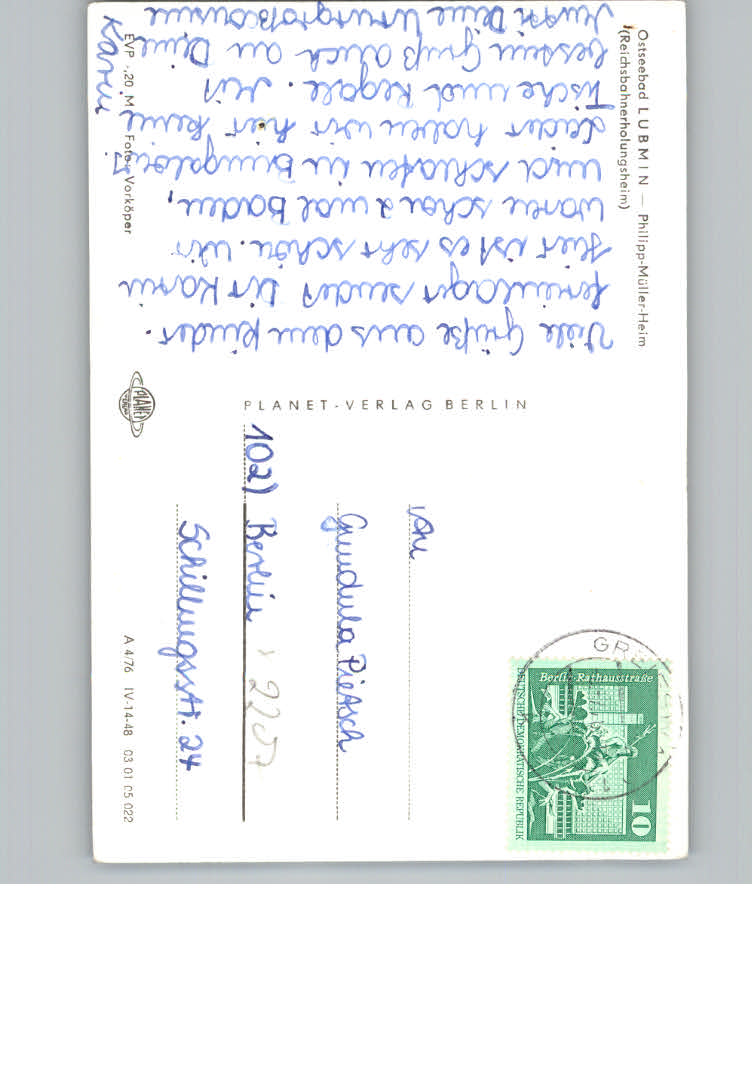 Ostseebad LUBMIN — Philipp-Müller-Heim
(Reichsbahnerholungsheim)
Viele Grüße aus dem Kinder-
ferienlager sendet Dir Karin
Hier ist es sehr schön. Wir
waren schon 2 mal baden,
und schlafen in Bungalois
Leider haben wir hier keine
Tische und Regale. Mit
bessin Gruß auch an Deine
Mutti Deine Unurgroßcousine
Karin
EVP -,20 M Foto: Vorköper
PLANET-VERLAG BERLIN
PLANET
An
Gundula Pietsch
1021 Berlin
2207
Schillingsstr. 24
A 4/76 IV-14-48 03 01 05 022
Berlin-Rathausstraße
DEUTSCHE DEMOKRATISCHE REPUBLIK
10